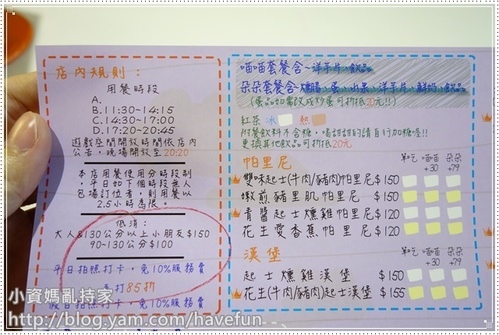 店內規則:
用餐時段
A.
B.11:30~14:15
C.14:30~17:05
D.17:20~20:45
遊戲區開放時間依店內
公告,現場開放至20:20
本店用餐使用分時段制
平日如下個時段無人
包場訂位者,則用餐以
2.5小時為限。
低消:
大人&130公分以上小朋友$150
90~130公分$100
平日拍照打卡,免10%服務費
打85折
拍打卡,免10%服務費
喵喵套餐含-洋芋片、飲品
朵朵套餐含
(蛋品如需改成炒蛋可折抵20元!!)
紅茶 冰 起
附餐飲料不含糖,
更換其他飲品可折抵20元
帕里尼
單吃 +喵喵 朵朵
+30 +79
雙味起士(牛肉/豬肉)帕里尼$150
嫩煎豬里肌帕里尼 $150
青醬起士燻雞帕里尼 $120
花生愛香蕉帕里尼 $120
漢堡
單吃 +喵喵 朵朵
+30 +79
起士燻雞漢堡 $150
花生(牛肉/豬肉)起士漢堡 $155
小資媽亂持家
http://blog.yam.com/havefun/